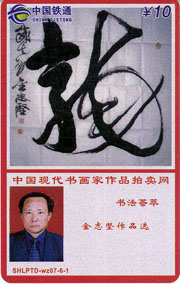 中国铁通
CHINA TIETONG
¥10
龙
中国现代书画家作品拍卖网
书法荟萃
金志坚作品选
SHLPTD-wz07-6-1